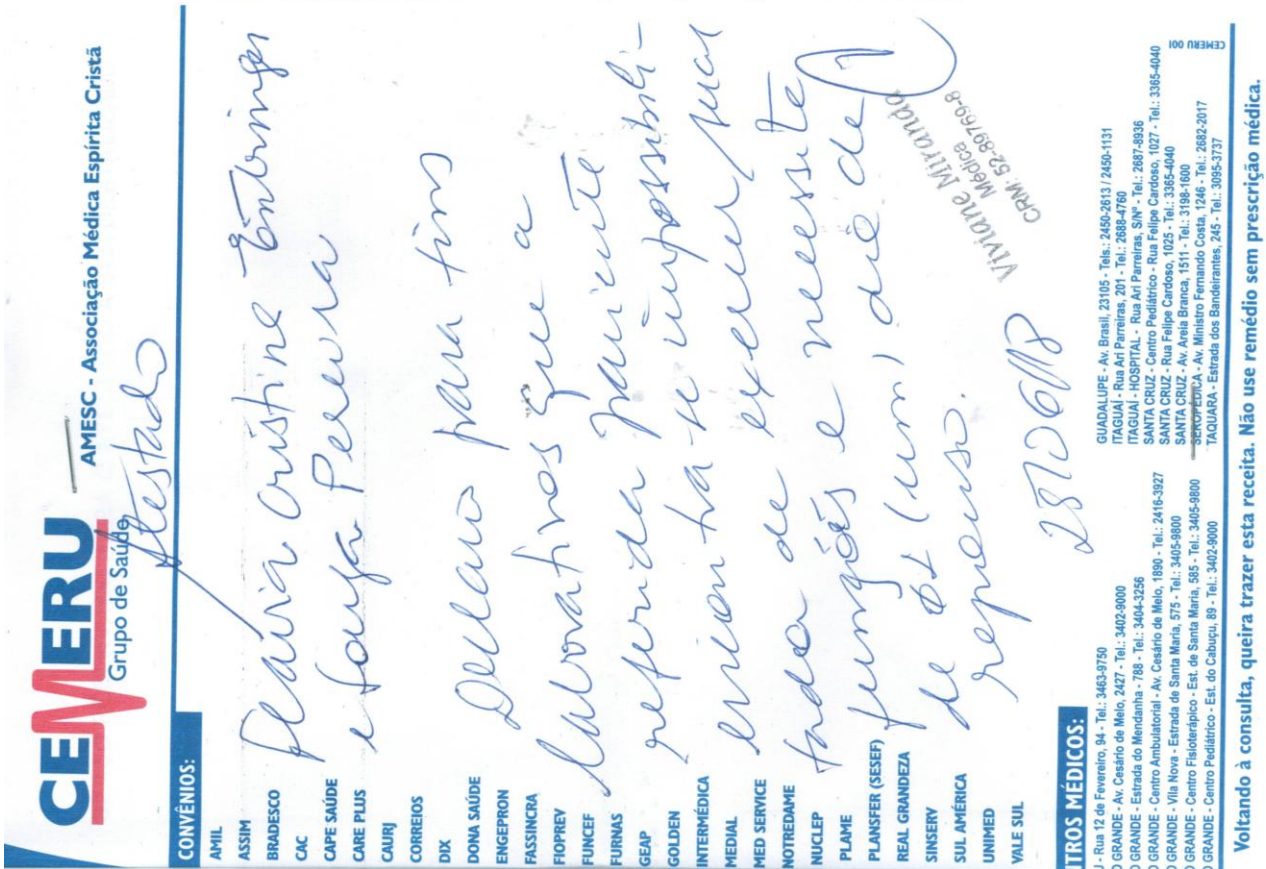 CEMERU
Grupo de Saúde
AMESC - Associação Médica Espírita Cristã
Atestado
CONVÊNIOS:
AMIL
ASSIM
BRADESCO
CAC
CAPE SAÚDE
CARE PLUS
CAURJ
CORREIOS
DIX
DONA SAÚDE
ENGEPRON
FASSINCRA
FIOPREV
FUNCEF
FURNAS
GEAP
GOLDEN
INTERMÉDICA
MEDIAL
MED SERVICE
NOTREDAME
NUCLEP
PLAME
PLANSFER (SESEF)
REAL GRANDEZA
SINSERV
SUL AMÉRICA
UNIMED
VALE SUL
Flávia Cristine
e Souza Pereira
Declaro para fins
laborativos que a
referida paciente
encontra-se impossibili-
tada de exercer suas
funções e necessita
de 01 (um) dia de
repouso.
28/06/18
Viviane Miranda
Médica
CRM: 52-89769-8
TROS MÉDICOS:
J - Rua 12 de Fevereiro, 94 - Tel.: 3463-9750
O GRANDE - Av. Cesário de Melo, 2427 - Tel.: 3402-9000
O GRANDE - Estrada do Mendanha - 788 - Tel.: 3404-3256
O GRANDE - Centro Ambulatorial - Av. Cesário de Melo, 1890 - Tel.: 2416-3927
O GRANDE - Vila Nova - Estrada de Santa Maria, 575 - Tel.: 3405-9800
O GRANDE - Centro Fisioterápico - Est. de Santa Maria, 585 - Tel.: 3405-9800
O GRANDE - Centro Pediátrico - Est. do Cabuçu, 89 - Tel.: 3402-9000
GUADALUPE - Av. Brasil, 23105 - Tels.: 2450-2613 / 2450-1131
ITAGUAÍ - Rua Ari Parreiras, 201 - Tel.: 2688-4760
ITAGUAÍ - HOSPITAL - Rua Ari Parreiras, S/Nº - Tel.: 2687-8936
SANTA CRUZ - Centro Pediátrico - Rua Felipe Cardoso, 1027 - Tel.: 3365-4040
SANTA CRUZ - Rua Felipe Cardoso, 1025 - Tel.: 3365-4040
SANTA CRUZ - Av. Areia Branca, 1511 - Tel.: 3198-1600
SEROPÉDICA - Av. Ministro Fernando Costa, 1246 - Tel.: 2682-2017
TAQUARA - Estrada dos Bandeirantes, 245 - Tel.: 3095-3737
CEMERU 001
Voltando à consulta, queira trazer esta receita. Não use remédio sem prescrição médica.